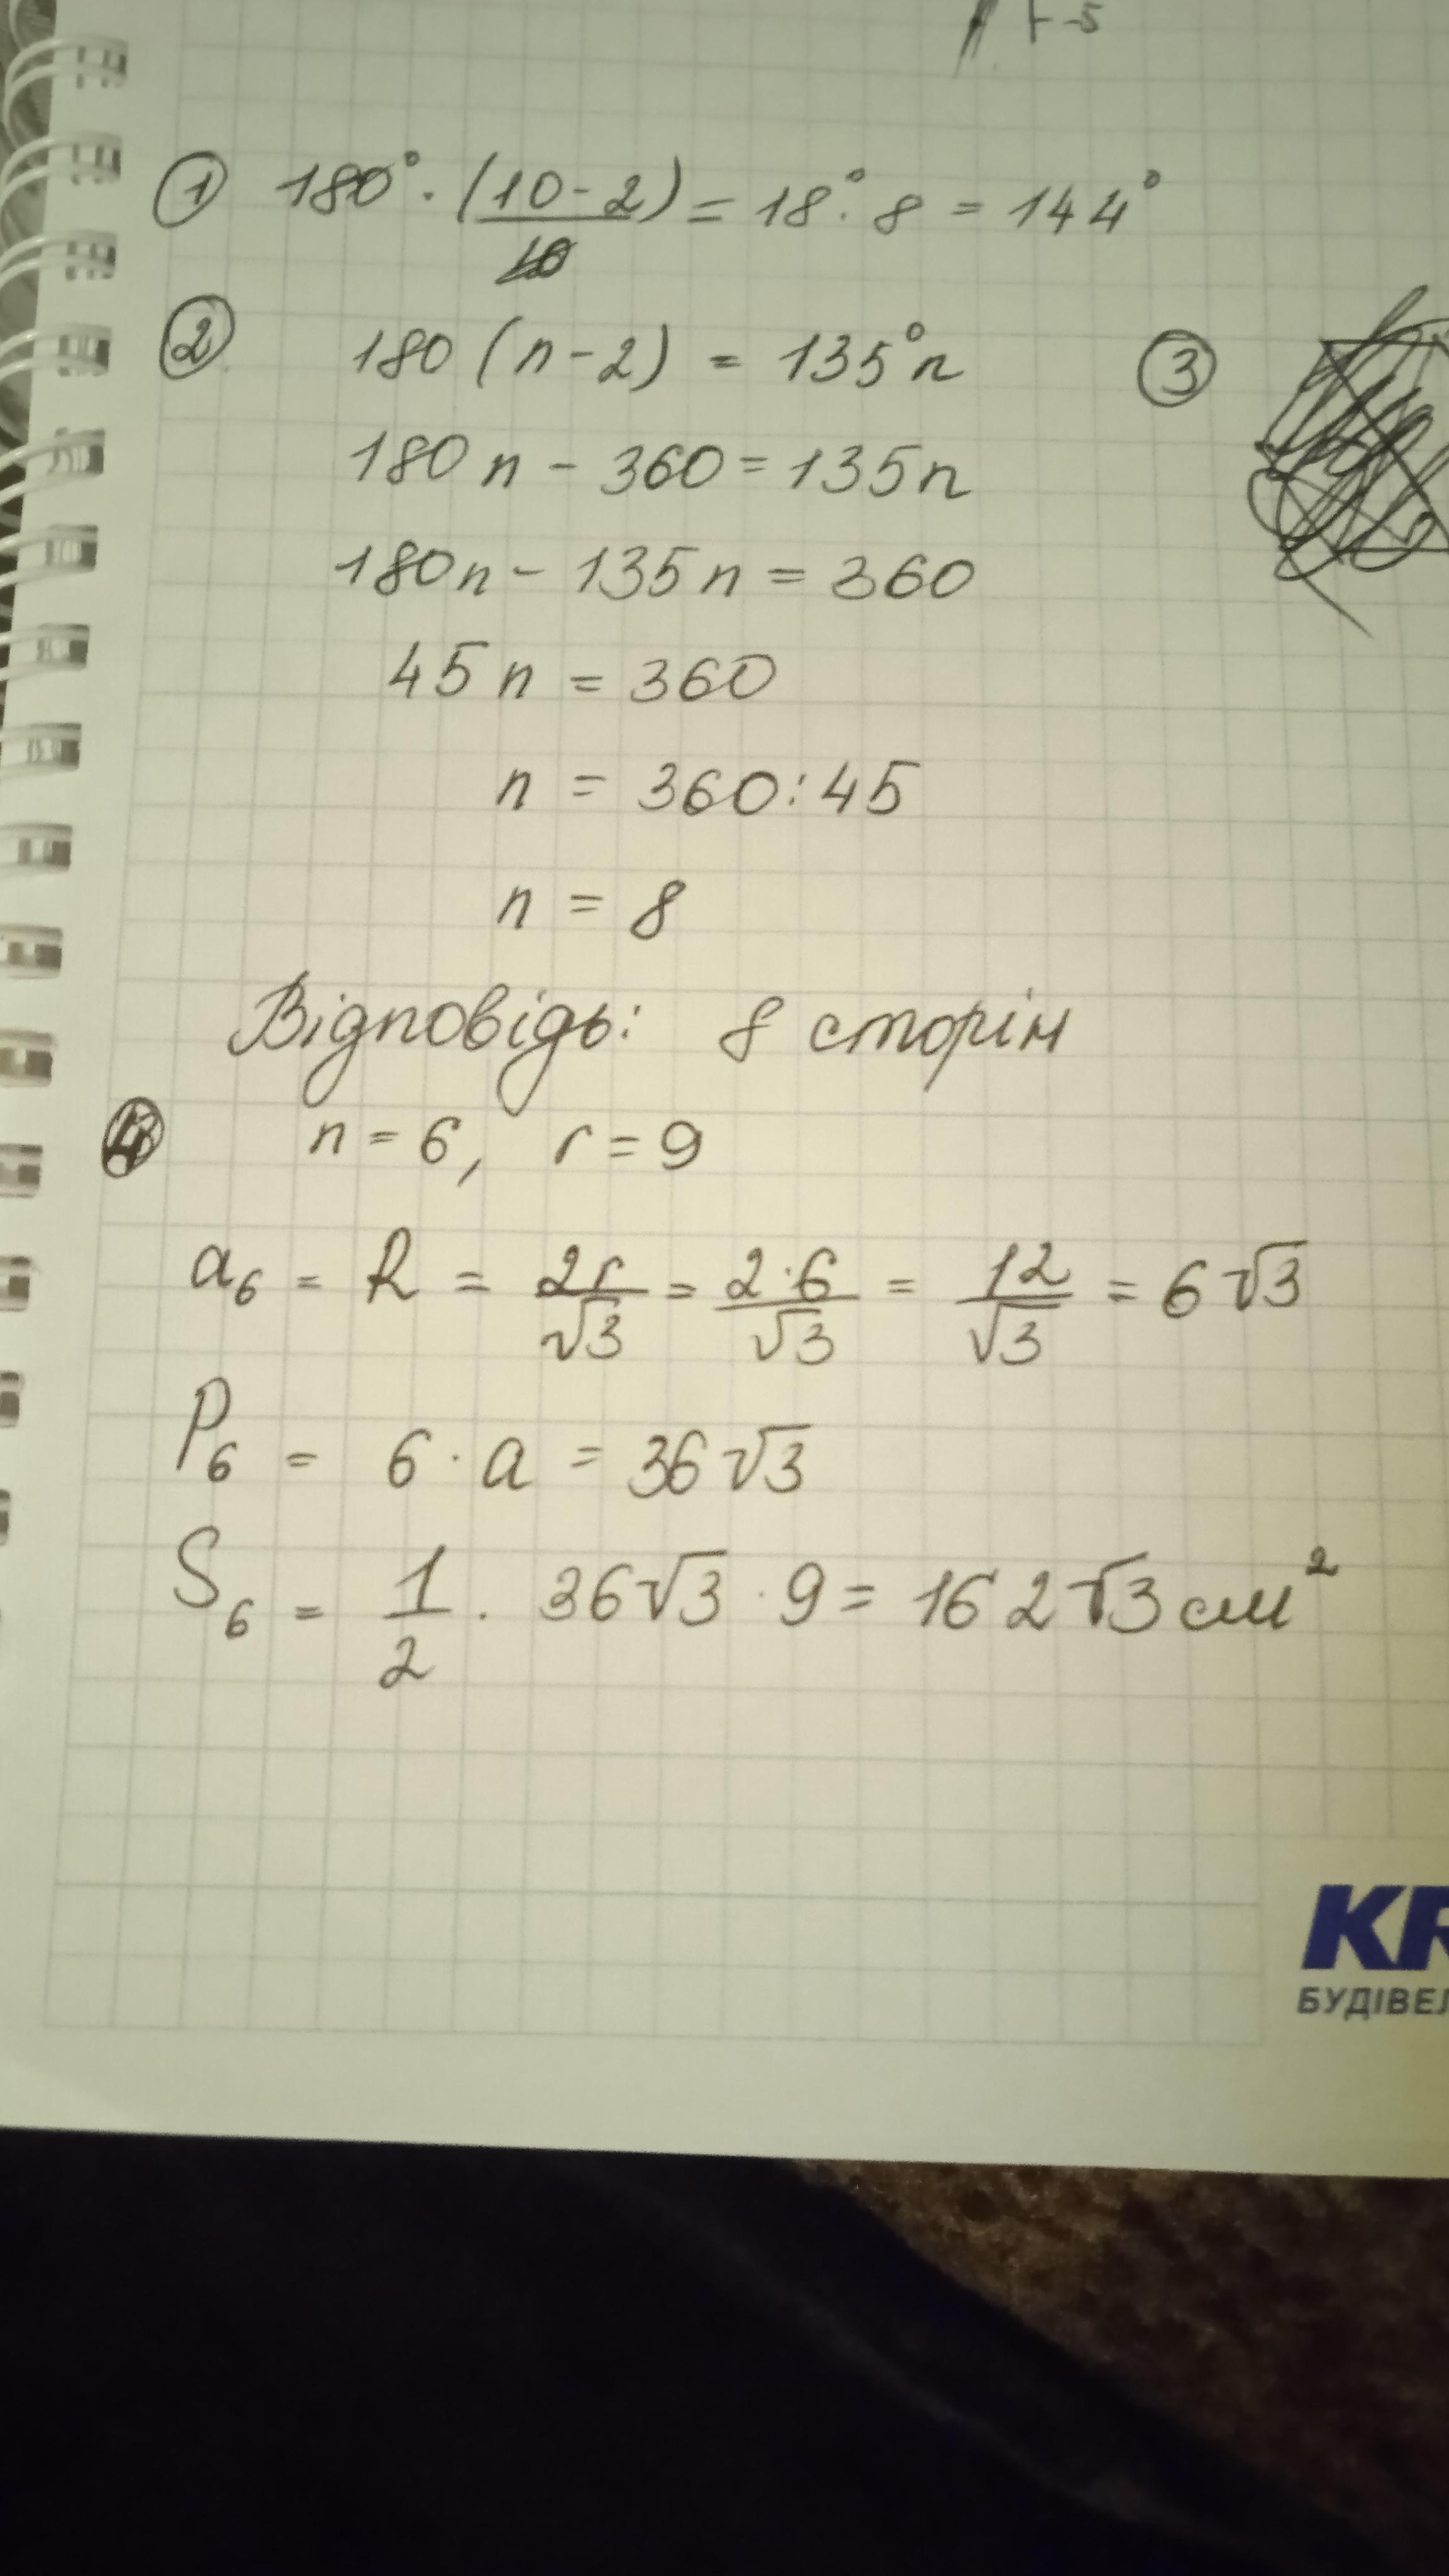 г-5
① 180° · (10-2)/10 = 18° · 8 = 144°
② 180 (n-2) = 135°n
③
180n - 360 = 135n
180n - 135n = 360
45n = 360
n = 360:45
n = 8
Відповідь: 8 сторін
④ n = 6, r = 9
a₆ = R = 2r/√3 = 2·6/√3 = 12/√3 = 6√3
P₆ = 6 · a = 36√3
S₆ = 1/2 · 36√3 · 9 = 162√3 см²
KR
БУДІВЕЛ